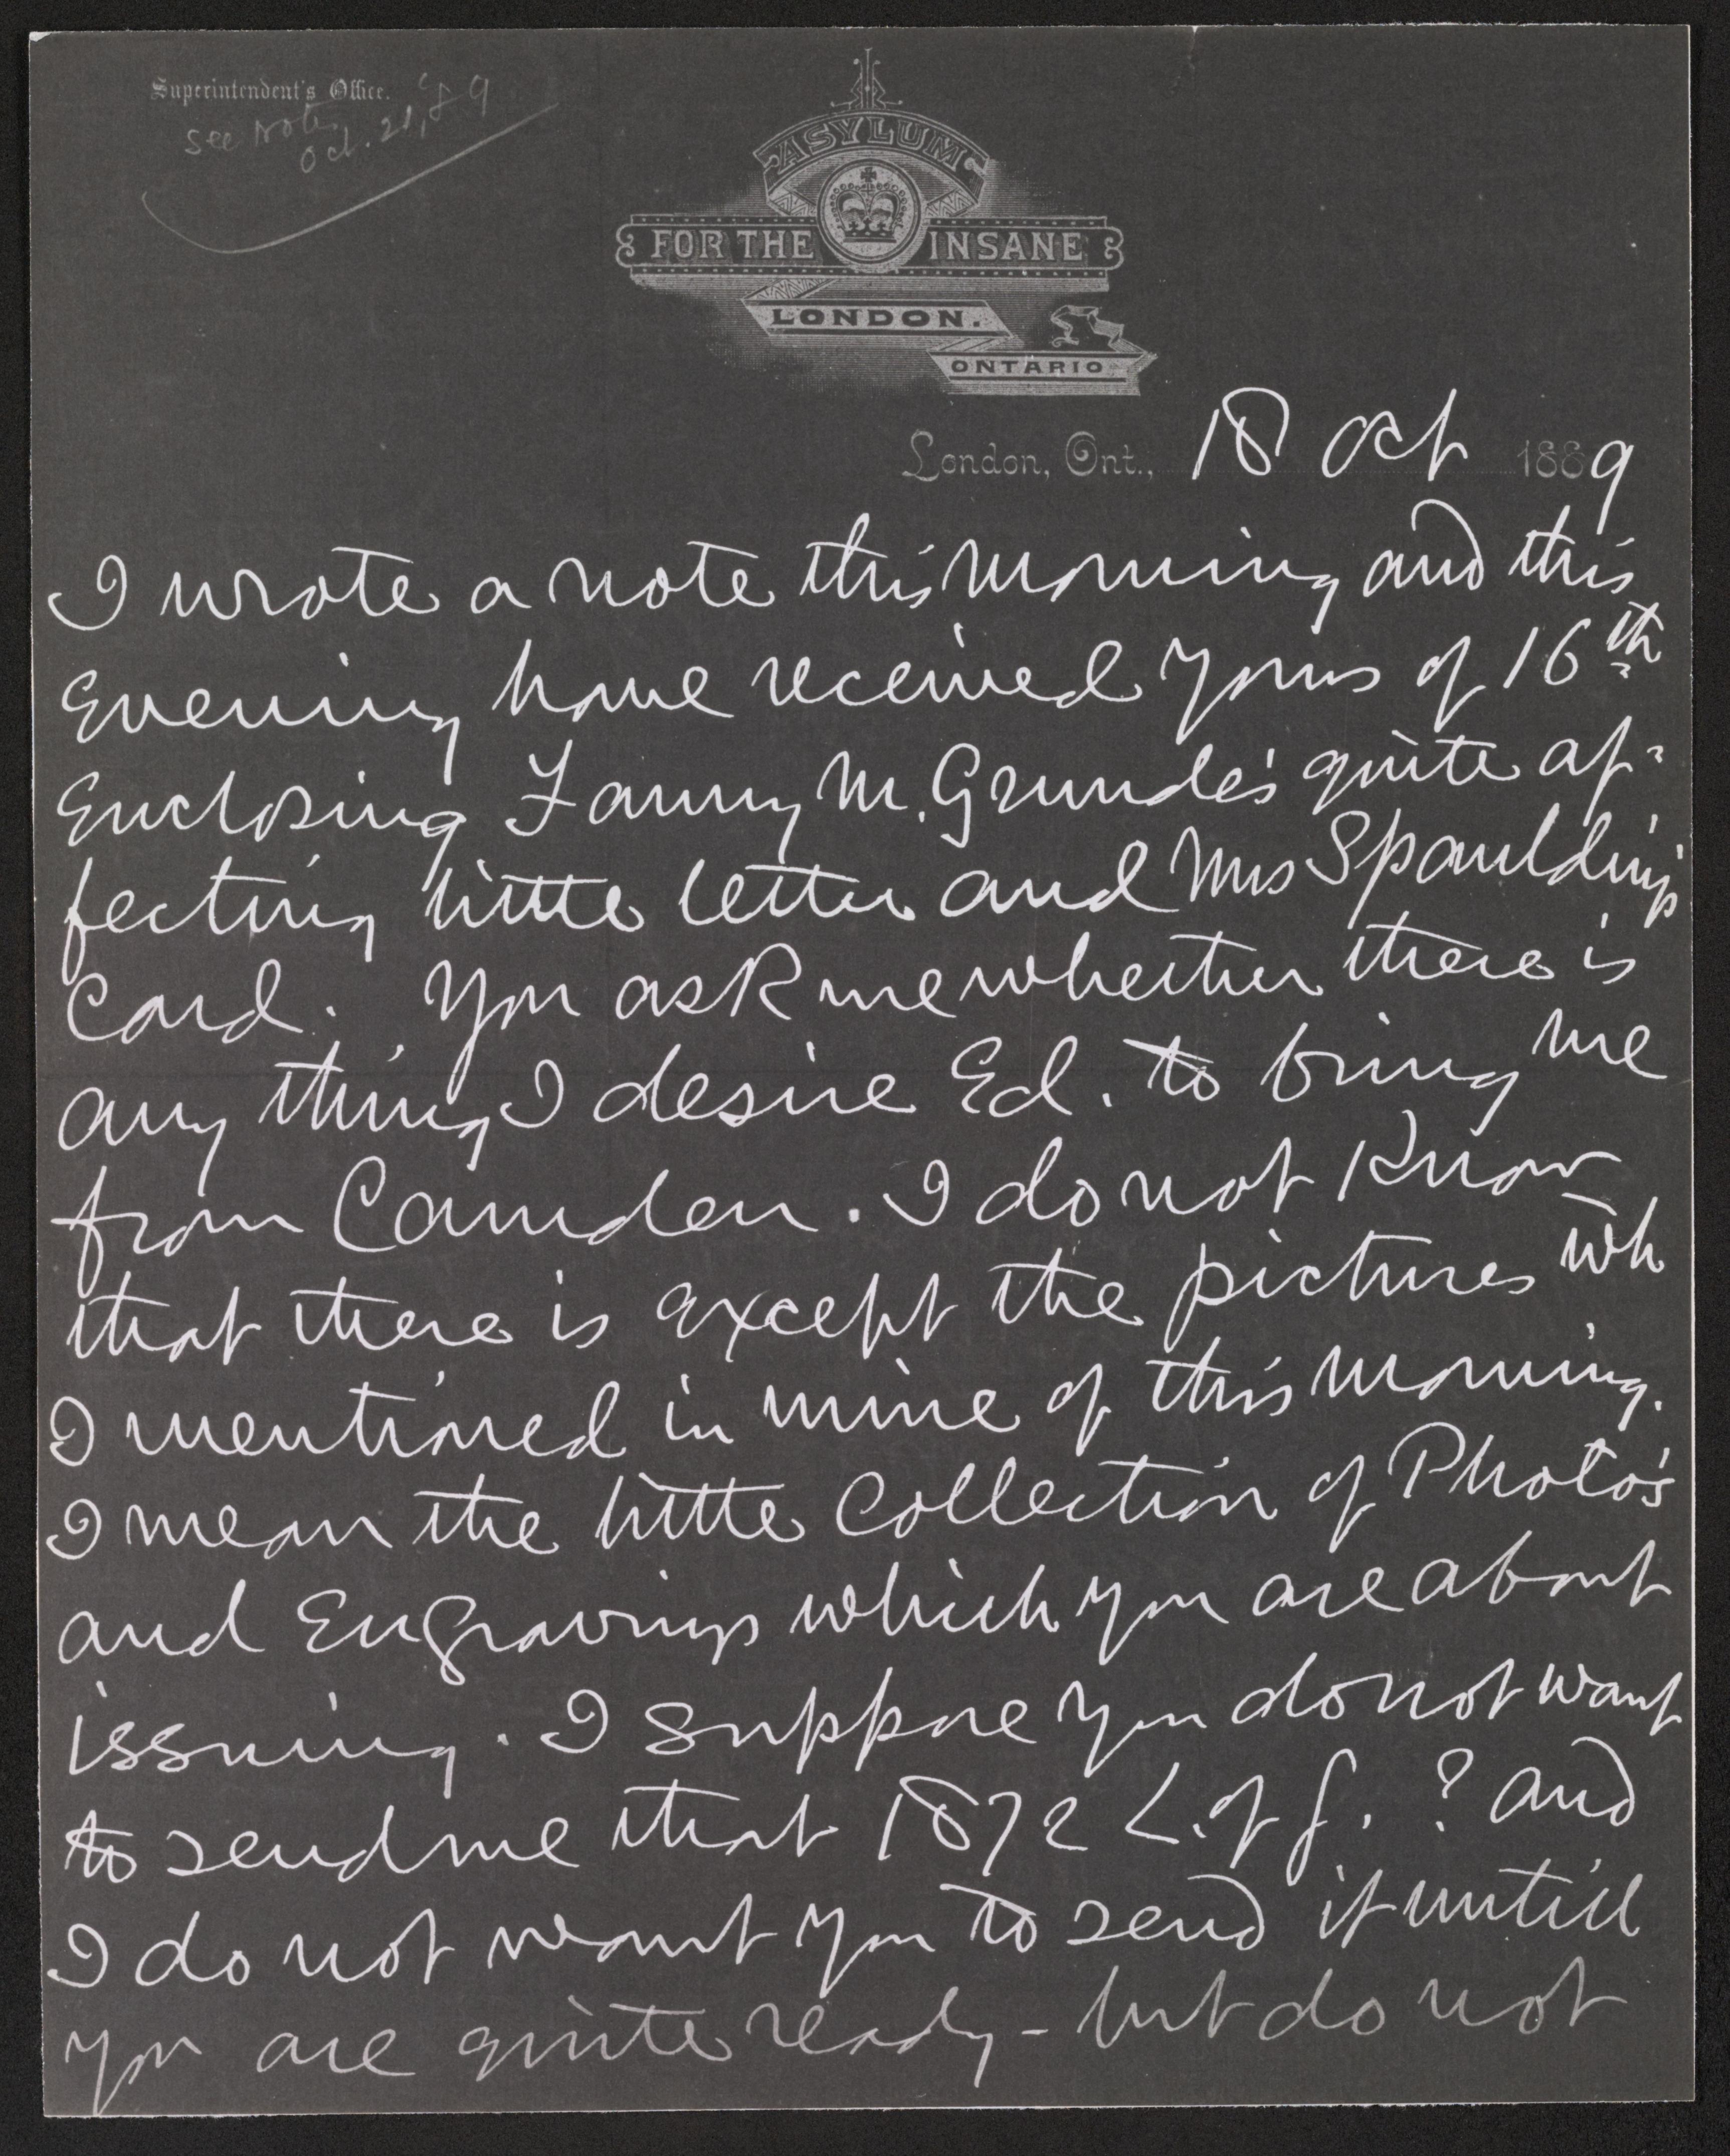 Superintendent's Office.
see notes
Oct. 21, '89
ASYLUM
FOR THE INSANE
LONDON.
ONTARIO
London, Ont., 18 Oct 1889
I wrote a note this morning and this
evening have received yours of 16th
enclosing Fanny M. Grundy's quite af-
fecting little letter and Mrs Spaulding's
Card. You ask me whether there is
any thing I desire Ed. to bring me
from Camden. I do not Know
that there is except the pictures wh
I mentioned in mine of this morning.
I mean the little Collection of Photo's
and Engravings which you are about
issuing. I suppose you do not want
to send me that 1872 L. of G. ? and
I do not want you to send it untill
you are quite ready - but do not